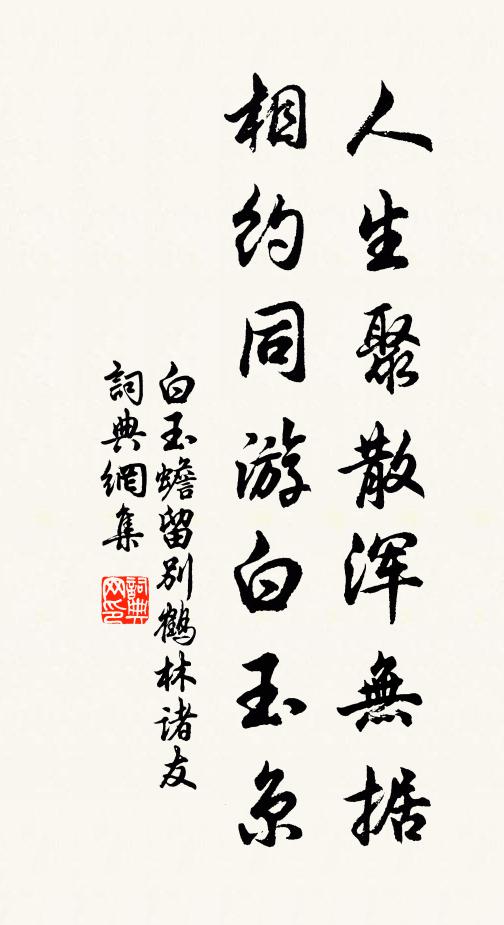 人生聚散浑無据
相約同游白玉京
白玉蟾留別鶴林諸友
詞典網集
詞典网印